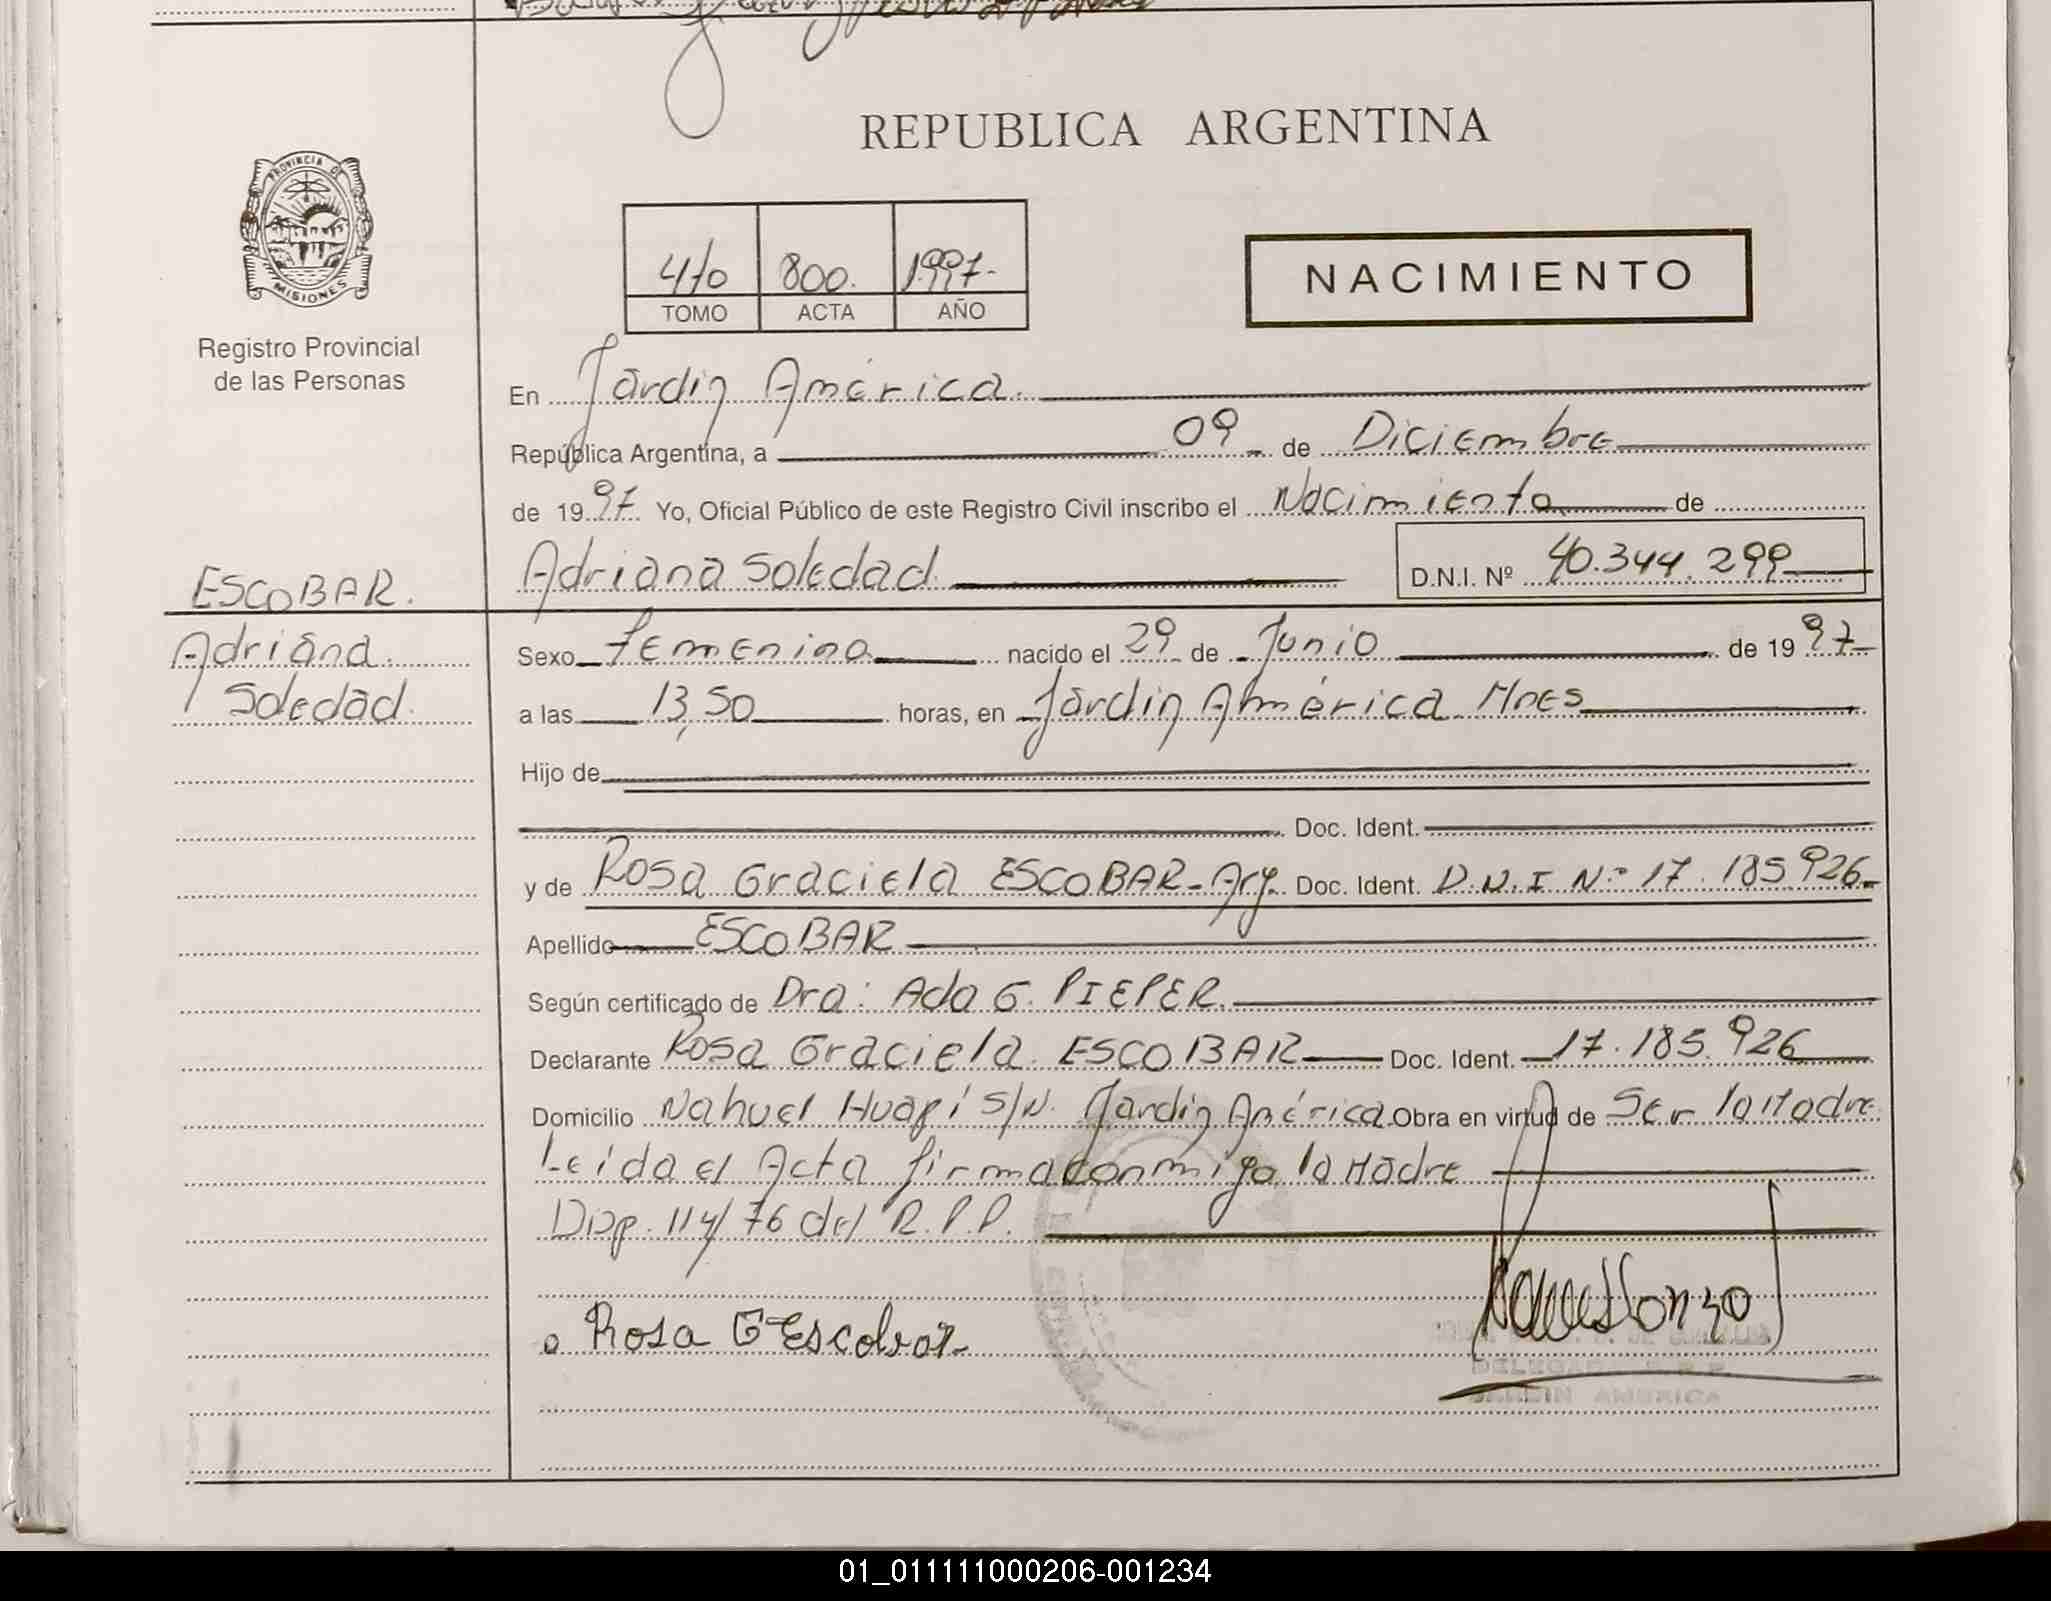 REPUBLICA ARGENTINA
PROVINCIA DE
MISIONES
Registro Provincial
de las Personas
4to 800. 1997-
TOMO ACTA AÑO
NACIMIENTO
En Jardin América.
República Argentina, a 09 de Diciembre
de 1997 Yo, Oficial Público de este Registro Civil inscribo el Nacimiento de
Adriana Soledad D.N.I. Nº 40.344.299
ESCOBAR.
Adriana
Soledad
Sexo Femenino nacido el 29 de Junio de 1997
a las 13,50 horas, en Jardin América Mnes
Hijo de
Doc. Ident.
y de Rosa Graciela ESCOBAR-Arg. Doc. Ident. D.N.I Nº 17.185.926
Apellido ESCOBAR
Según certificado de Dra: Ada G. PIEPER.
Declarante Rosa Graciela ESCOBAR Doc. Ident. 17.185.926
Domicilio Nahuel Huapí S/N. Jardin América Obra en virtud de Ser la Madre
Leída el Acta firma conmigo la Madre
Disp. 114/76 del R.P.P.
Rosa G Escobar
DELEGADA R.P.P.
JARDIN AMERICA
01_011111000206-001234